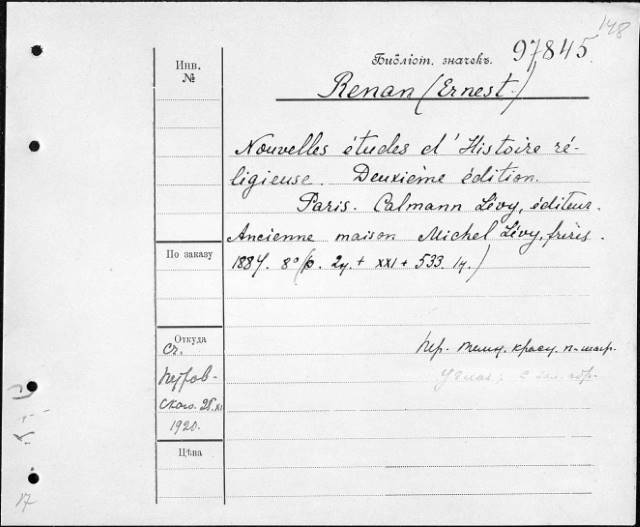 148
Инв.
№
Библіот. значекъ. 97845.
Renan (Ernest.)
Nouvelles études d'Histoire ré-
ligieuse. Deuxième édition.
Paris. Calmann Lévy, éditeur.
Ancienne maison Michel Lévy, frères.
1884. 8° (p. 2 + XXI + 533.
По заказу
Откуда
Пер. темн. красн.
1920.
Цѣна
17